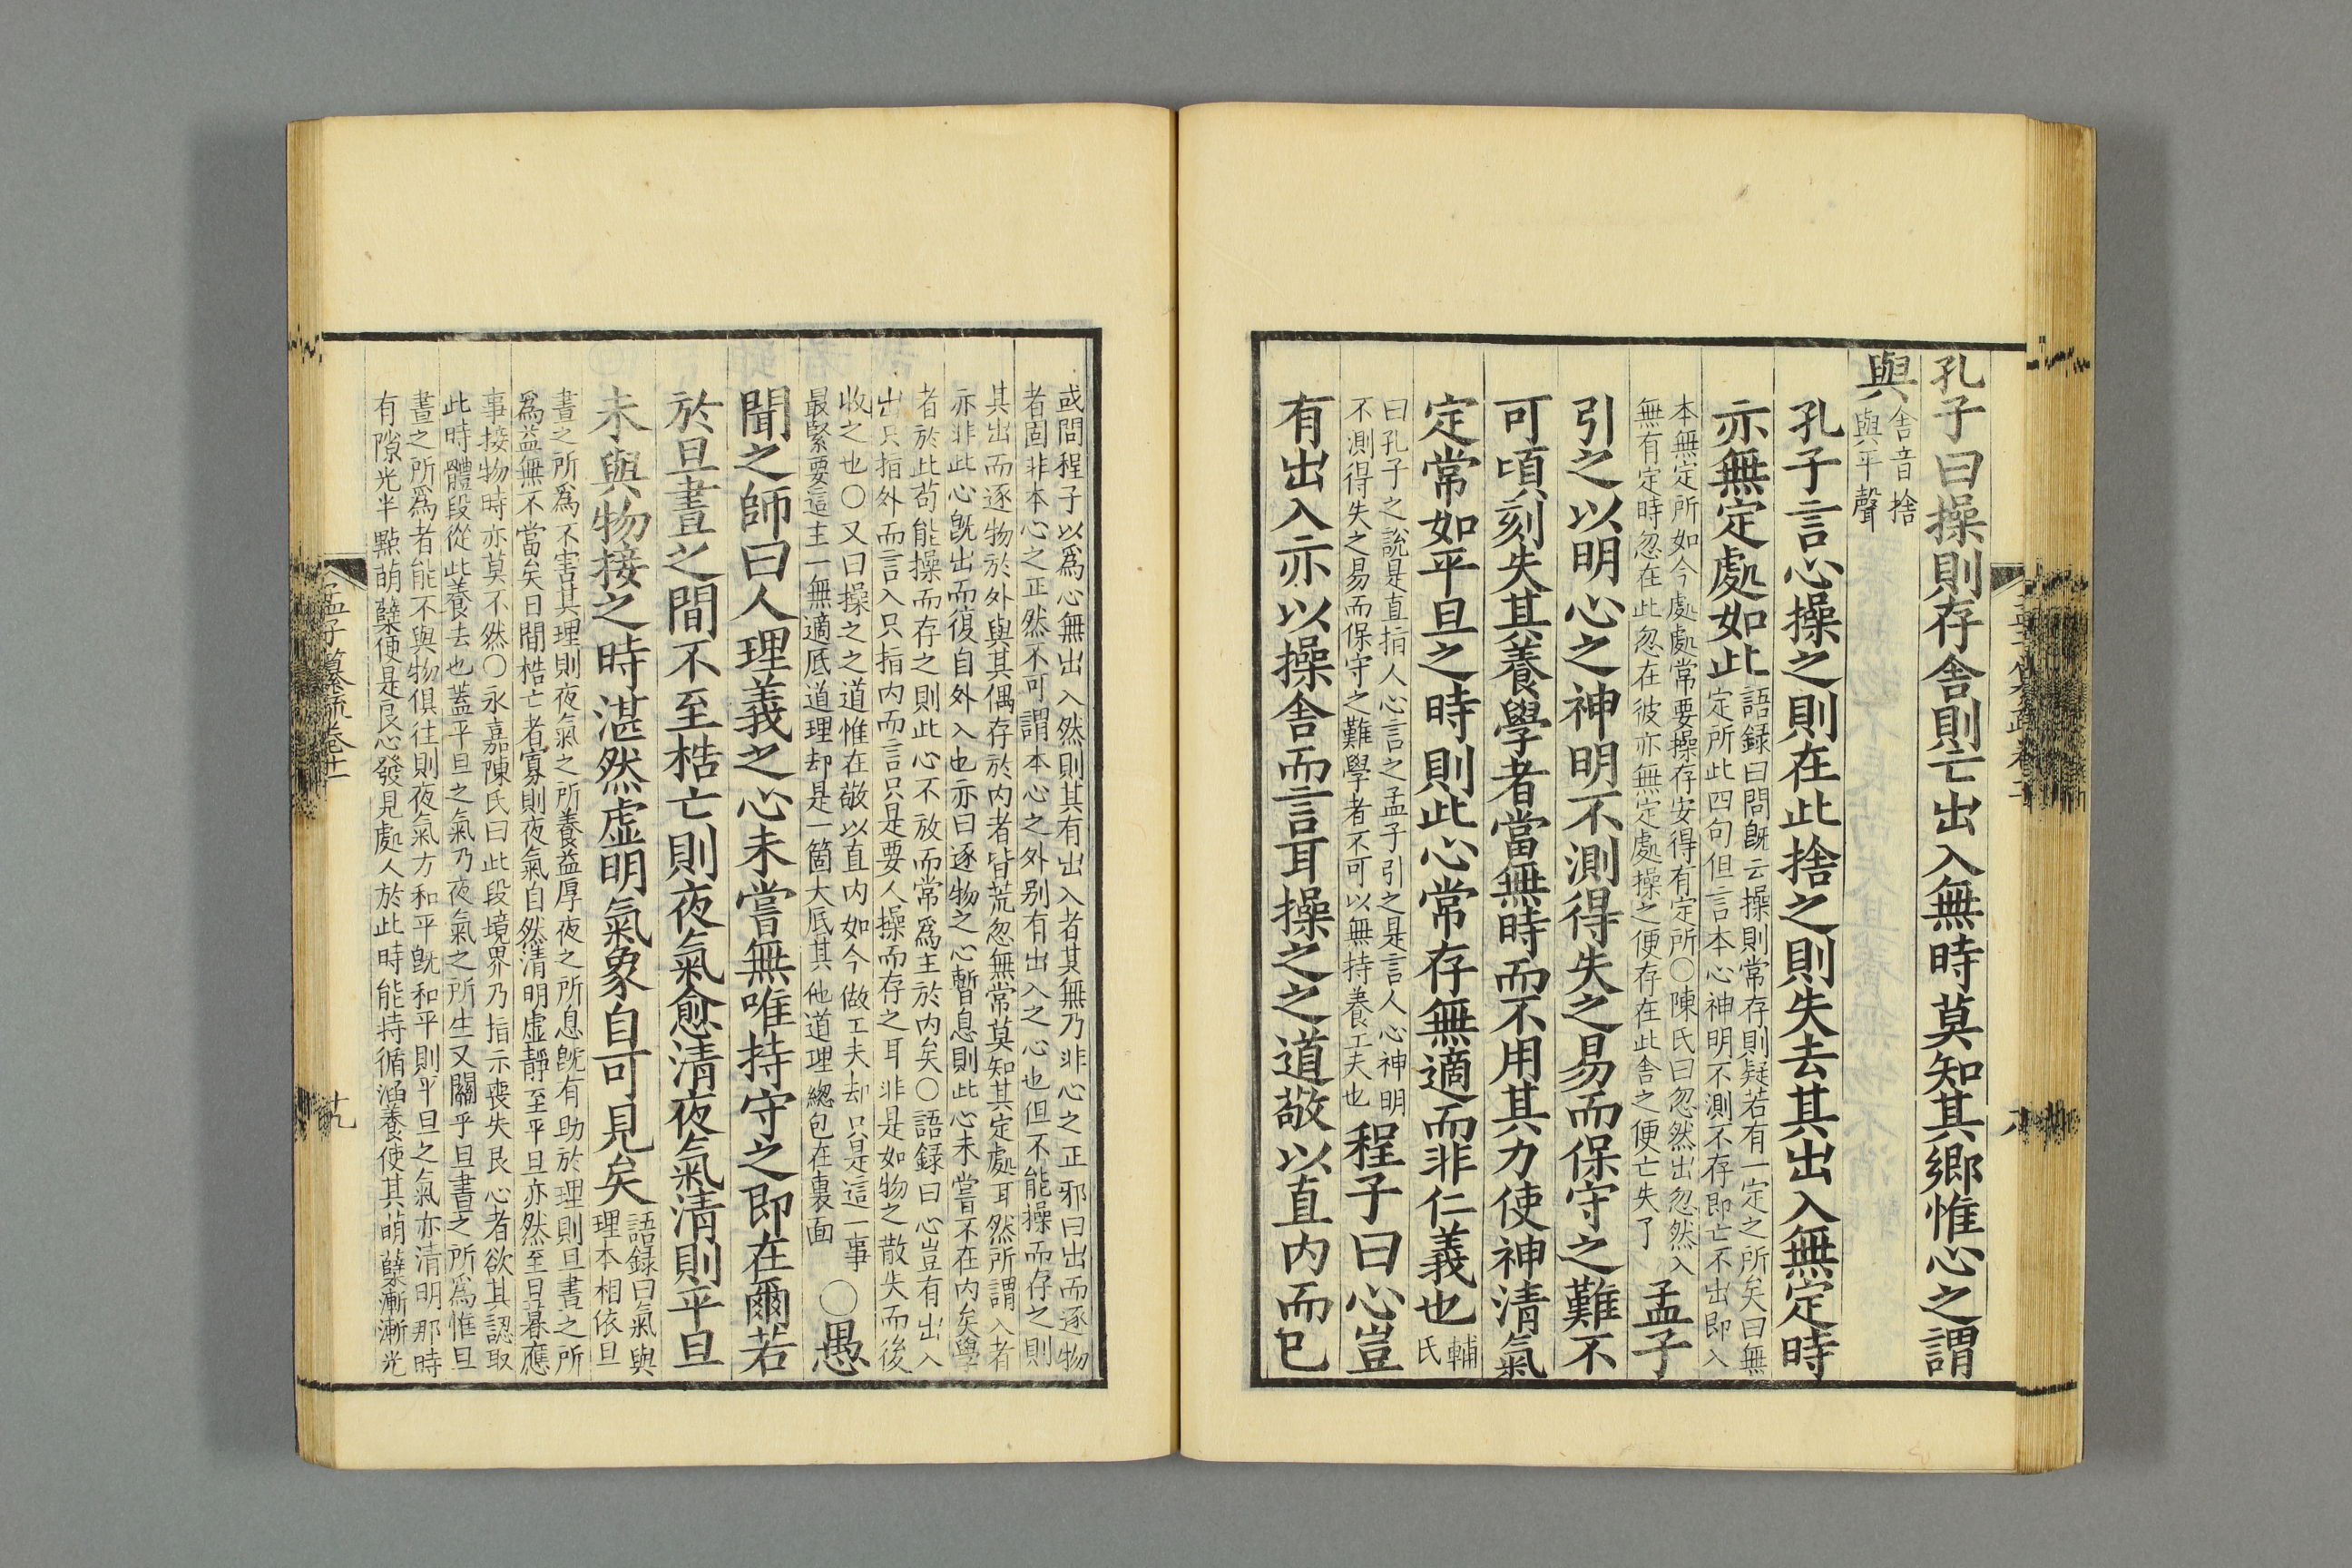 孔子曰操則存舍則亡出入無時莫知其鄉惟心之謂
與
舍音捨
與平聲
孔子言心操之則在此捨之則失去其出入無定時
亦無定處如此
語録曰問旣云操則常存則疑若有一定之所矣曰無
定所此四句但言本心神明不測不存即亡不出即入
本無定所如今處處常要操存安得有定所○陳氏曰忽然出忽然入
無有定時忽在此忽在彼亦無定處操之便存在此舍之便亡失了
孟子
引之以明心之神明不測得失之易而保守之難不
可頃刻失其養學者當無時而不用其力使神清氣
定常如平旦之時則此心常存無適而非仁義也
輔
氏
曰孔子之說是直指人心言之孟子引之是言人心神明
不測得失之易而保守之難學者不可以無持養工夫也
程子曰心豈
有出入亦以操舍而言耳操之之道敬以直內而已
或問程子以爲心無出入然則其有出入者其無乃非心之正邪曰出而逐物
者固非本心之正然不可謂本心之外别有出入之心也但不能操而存之則
其出而逐物於外與其偶存於内者皆荒忽無常莫知其定處耳然所謂入者
亦非此心旣出而復自外入也亦曰逐物之心暫息則此心未嘗不在内矣學
者於此苟能操而存之則此心不放而常爲主於内矣○語録曰心豈有出入
出只指外而言入只指内而言只是要人操而存之耳非是如物之散失而後
收之也○又曰操之之道惟在敬以直内如今做工夫却只是這一事
最緊要這主一無適底道理却是一箇大底其他道理總包在裏面
○愚
聞之師曰人理義之心未嘗無唯持守之即在爾若
於旦晝之間不至梏亡則夜氣愈清夜氣清則平旦
未與物接之時湛然虛明氣象自可見矣
語録曰氣與
理本相依旦
晝之所爲不害其理則夜氣之所養益厚夜之所息旣有助於理則旦晝之所
爲益無不當矣日間梏亡者寡則夜氣自然清明虛靜至平旦亦然至旦晝應
事接物時亦莫不然○永嘉陳氏曰此段境界乃指示喪失良心者欲其認取
此時體段從此養去也蓋平旦之氣乃夜氣之所生又關乎旦晝之所爲惟旦
晝之所爲者能不與物俱往則夜氣方和平旣和平則平旦之氣亦清明那時
有隙光半點萌蘖便是良心發見處人於此時能持循涵養使其萌蘖漸漸光
孟子纂疏卷十一
十九